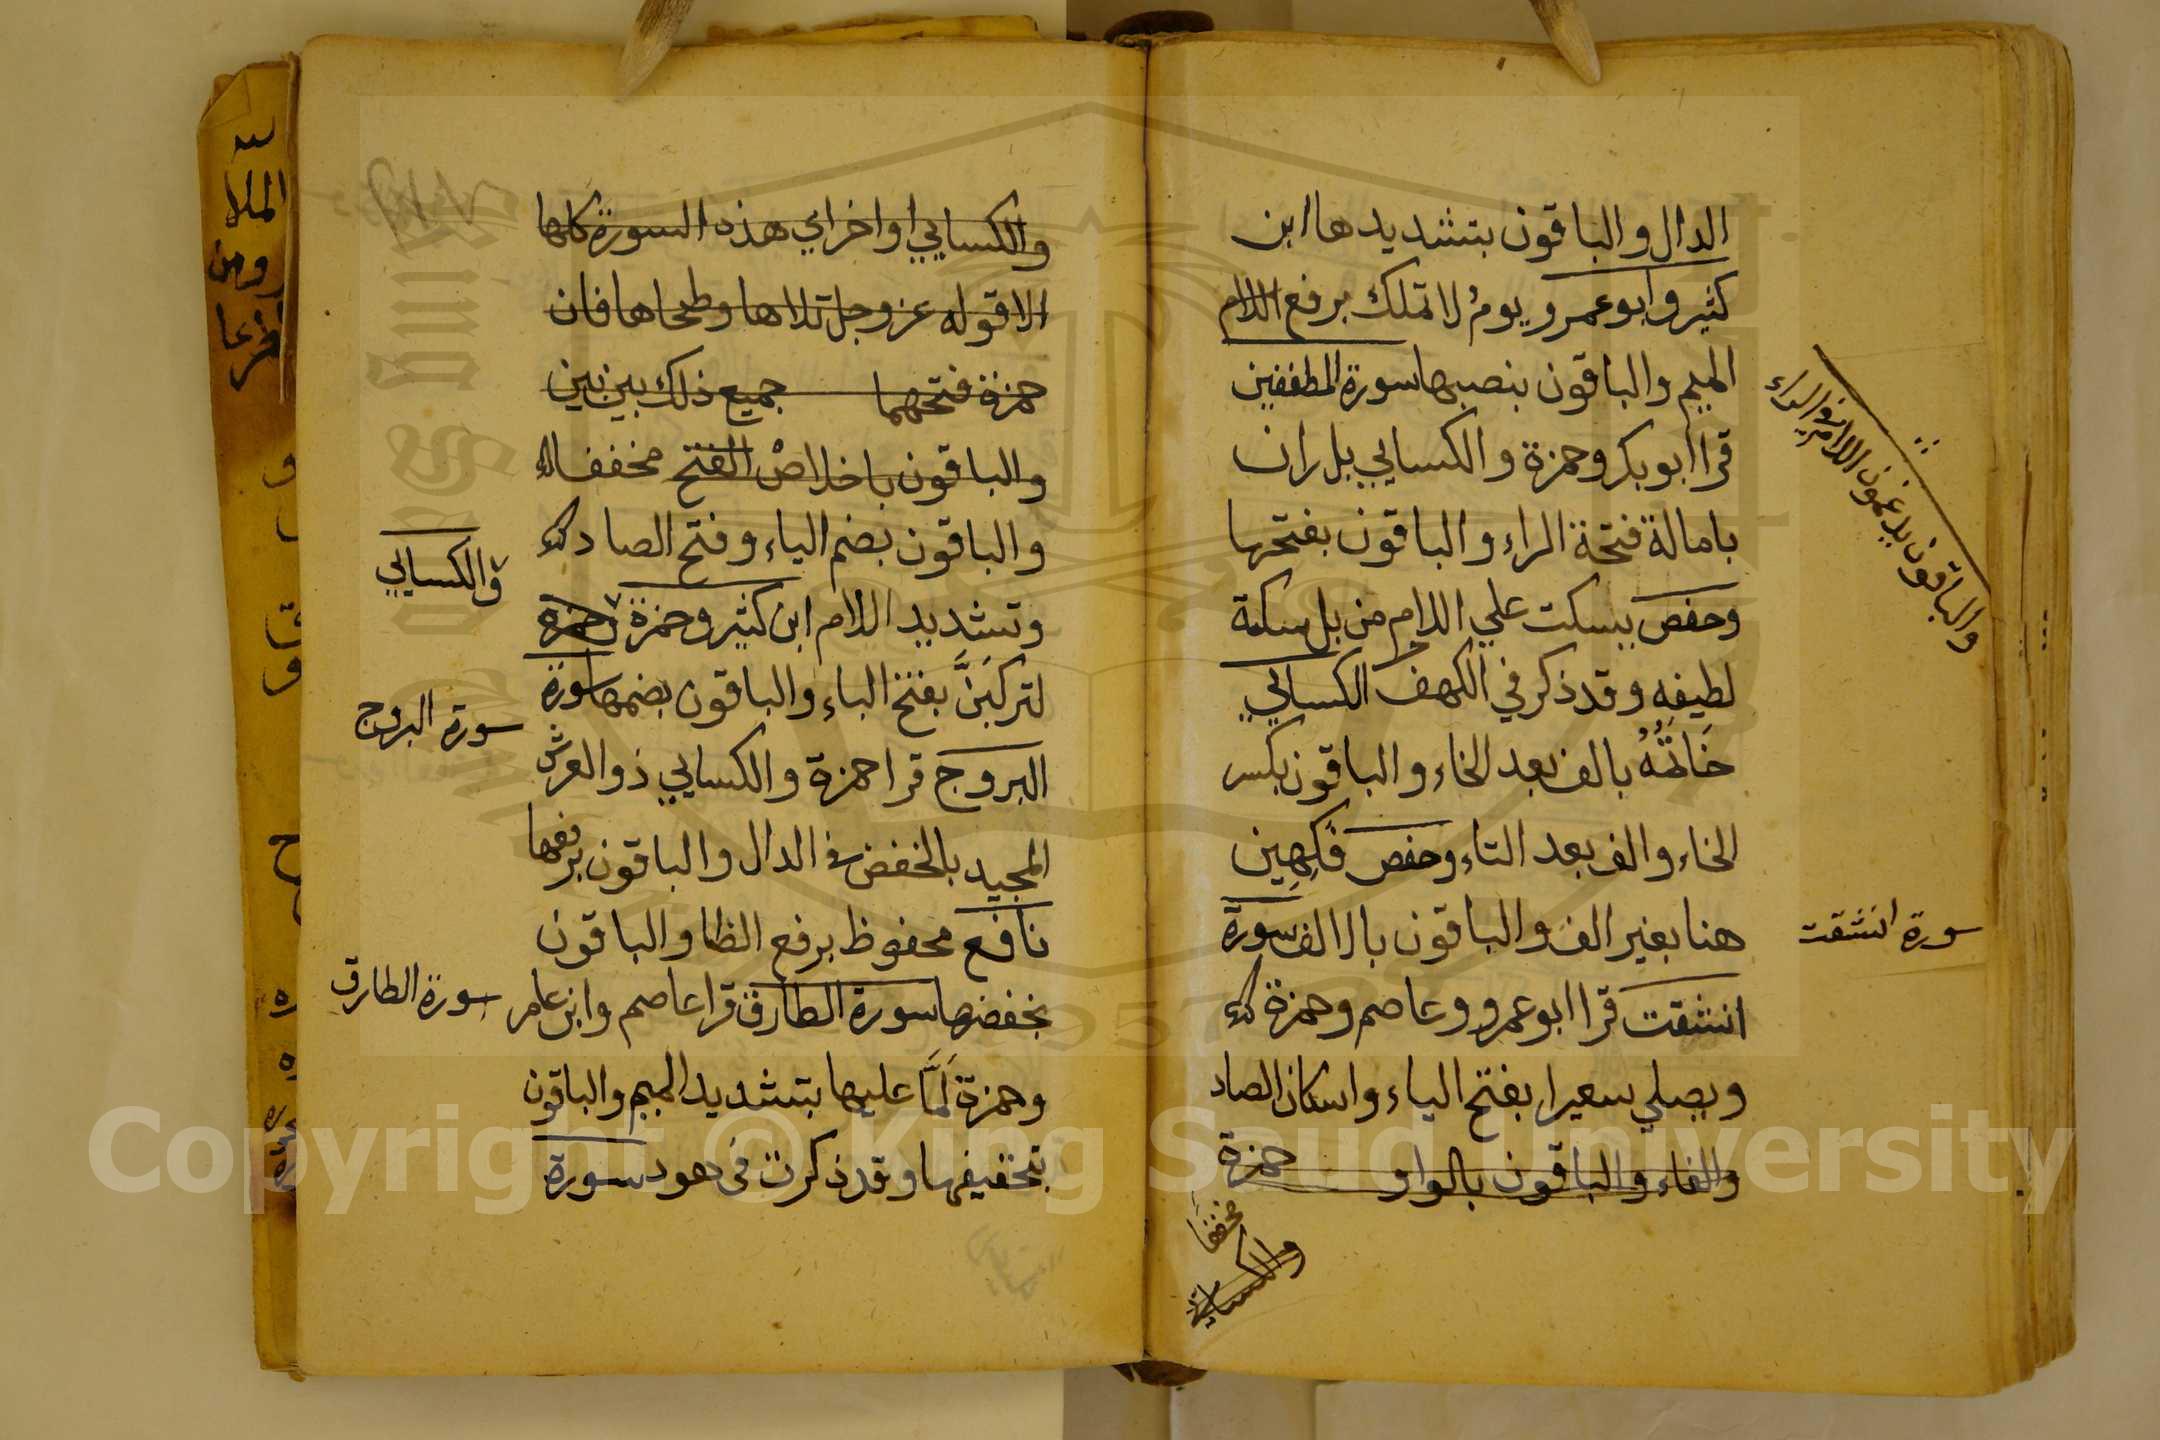 الدال والباقون بتشديدها ابن
كثير وابو عمرو يومُ لا تملك برفع اللام
الميم والباقون بنصبها سورة المطففين
قرا ابو بكر وحمزة والكسايي بل ران
بامالة فتحة الراء والباقون بفتحها
وحفص يسكت علي اللام من بل سكتة
لطيفه وقد ذكر في الكهف الكسايي
خَاتَمُهُ بالف بعد الخاء والباقون بكسر
الخاء والف بعد التاء وحفص فَكِهِين
هنا بغير الف والباقون بالالف سورة
انشقت قرا ابو عمرو وعاصم وحمزة
ويصلي سعيرا بفتح الياء واسكان الصاد
والفاء والباقون بالواو حمزة
مخففا
والكسايي
والباقون يدغمون اللام في الراء
سورة انشقت
والكسايي اواخر اي هذه السورة كلها
الا قوله عز وجل تلاها وطحاها فان
حمزة فتحهما جميع ذلك بين بين
والباقون باخلاص الفتح مخففا
والباقون بضم الياء وفتح الصاد
وتشديد اللام ابن كثير وحمزة وحمزه
لتركبَنَّ بفتح الباء والباقون بضمها سورة
البروج قرا حمزة والكسايي ذو العرش
المجيد بالخفض في الدال والباقون برفعها
نافع محفوظ برفع الظا والباقون
بخفضها سورة الطارق قرا عاصم وابن عامر
وحمزة لَمَّا عليها بتشديد الميم والباقون
بتخفيفها وقد ذكرت في هود سورة
والكسايي
سورة البروج
سورة الطارق
الملا
ومن
Copyright © King Saud University
1957